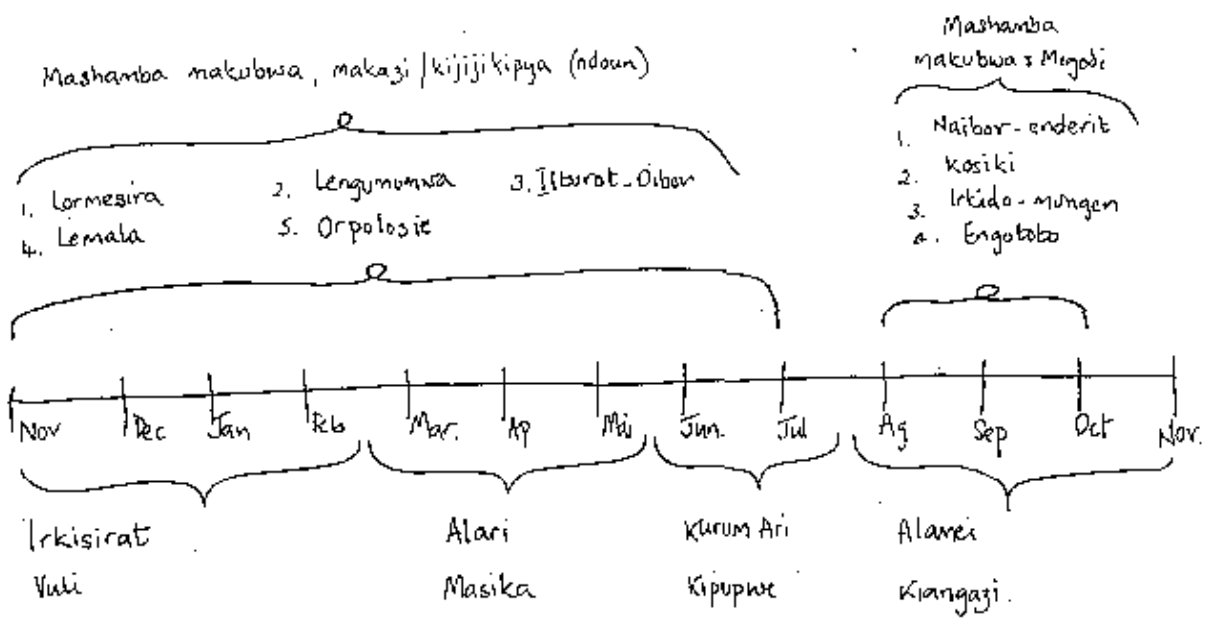 Mashamba makubwa, makazi /kijijikipya (ndoun)
1. Lormesira 2. Lengunumwa 3. Ilturot-Oibor
4. Lemala 5. Orpolosie
Mashamba
makubwa & Megodi
1. Naibor-enderit
2. Kosiki
3. Irkido-mungen
4. Engobobo
Nov Dec Jan Feb Mar. Ap Mai Jun. Jul Ag Sep Oct Nov.
Irkisirat Alari Kurum Ari Alamei
Vuli Masika Kipupwe Kiangazi.